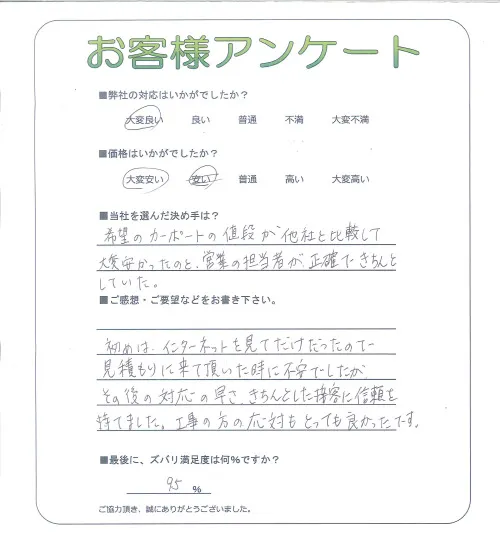 お客様アンケート
■弊社の対応はいかがでしたか？
大変良い 良い 普通 不満 大変不満
■価格はいかがでしたか？
大変安い 安い 普通 高い 大変高い
■当社を選んだ決め手は？
希望のカーポートの値段が他社と比較して
大変安かったのと、営業の担当者が正確できちんと
していた。
■ご感想・ご要望などをお書き下さい。
初めは、インターネットを見てだけだったので
見積もりに来て頂いた時に不安でしたが
その後の対応の早さ、きちんとした接客に信頼を
持てました。工事の方の応対もとっても良かったです。
■最後に、ズバリ満足度は何%ですか？
95 %
ご協力頂き、誠にありがとうございました。